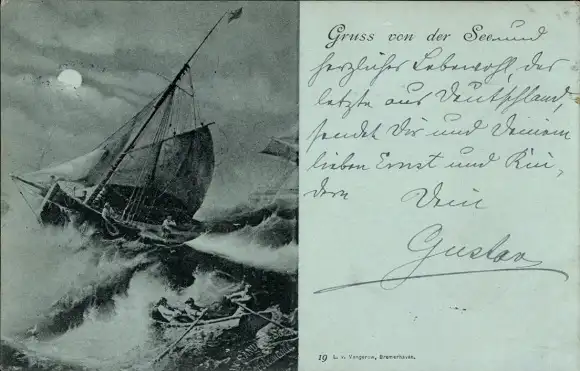 Gruss von der See und
herzliches Lebewohl, das
letzte aus Deutschland
sendet Dir und Deinem
lieben Ernst und Kin-
dern Dein
Gustav
19 L. v. Vangerow, Bremerhaven.